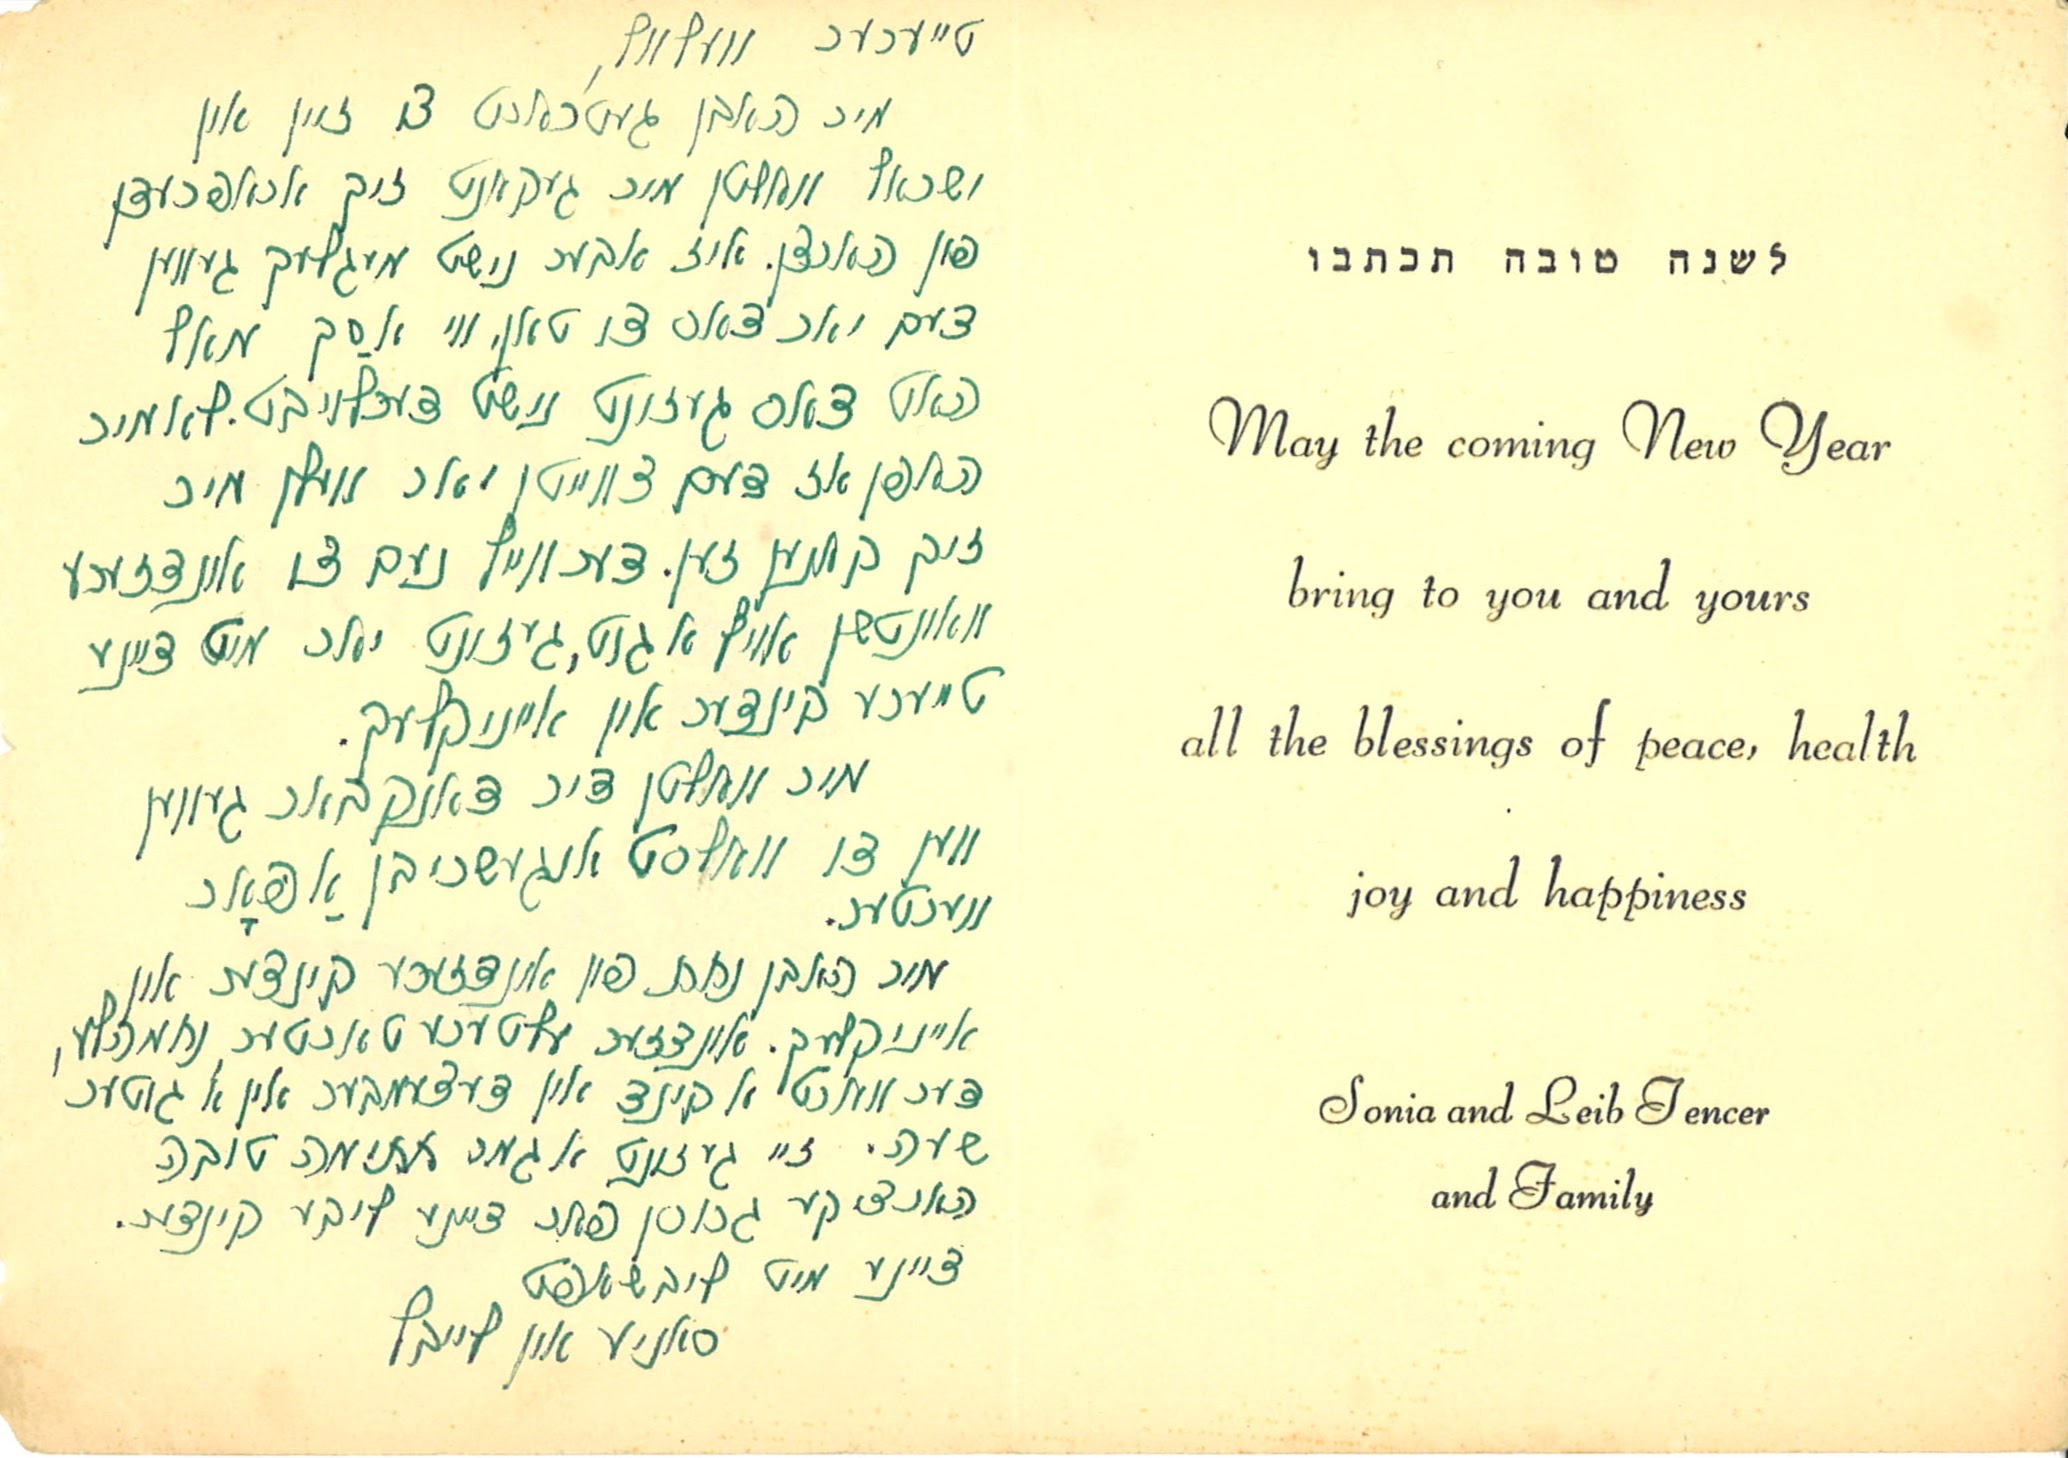 טייערער וועלוול,
מיר האבן געטראכט צו זיין אין
ישראל וואלטן מיר געקאנט זיך אראפרעדן
פון הארצן. איז אבער נישט מעגלעך געווען
דעם יאר דאס צו טאן, ווי אַ סך מאל
האט דאס געזונט נישט דערלויבט. לאמיר
האפן אז דעם צווייטן יאר וועלן מיר
זיך קאנען זען. דערווייל נעם צו אונדזערע
וואונטשן אויף א גוט, געזונט יאר מיט דיינע
טייערע קינדער און אייניקלעך.
מיר וואלטן דיר דאנקבאר געווען
ווען דו וואלסט אנגעשריבן אַ פּאָר
ווערטער.
מיר האבן נחת פון אונדזערע קינדער און
אייניקלעך. אונדזער עלטערע טאכטער, נחמהלע,
דערווארט א קינד אין דעצעמבער אין א גוטער
שעה. זיי געזונט א גמר חתימה טובה
הארציקע גרוסן פאר דיינע ליבע קינדער.
דיינע מיט ליבשאפט
סאניע און לייבל
לשנה טובה תכתבו
May the coming New Year
bring to you and yours
all the blessings of peace, health
joy and happiness
Sonia and Leib Tencer
and Family